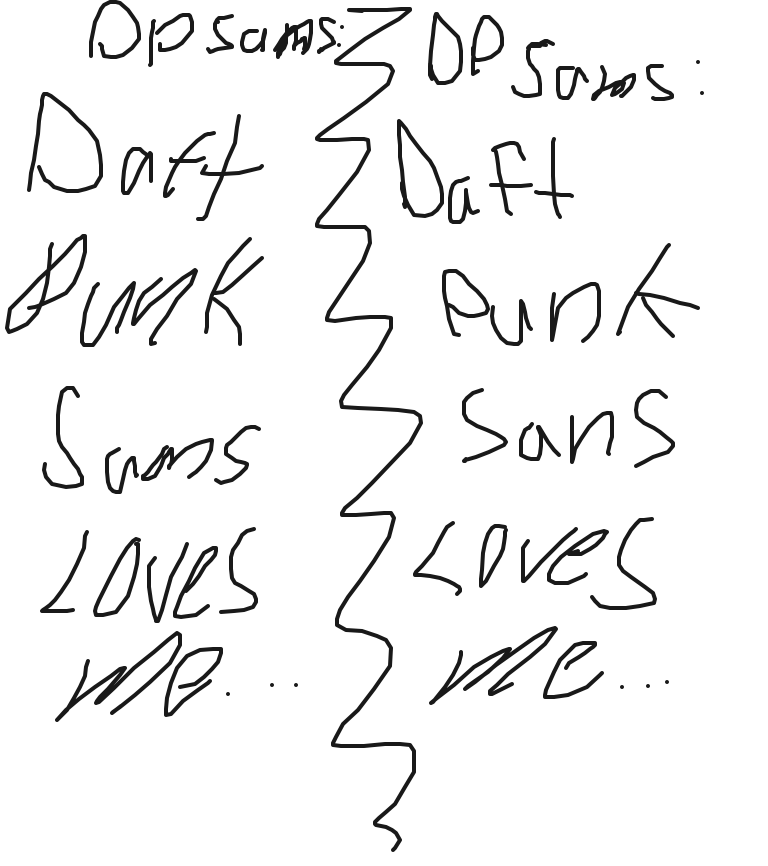 DP Sans:
Daft
Punk
Sans
Loves
me...
DP Sans:
Daft
Punk
Sans
Loves
me...